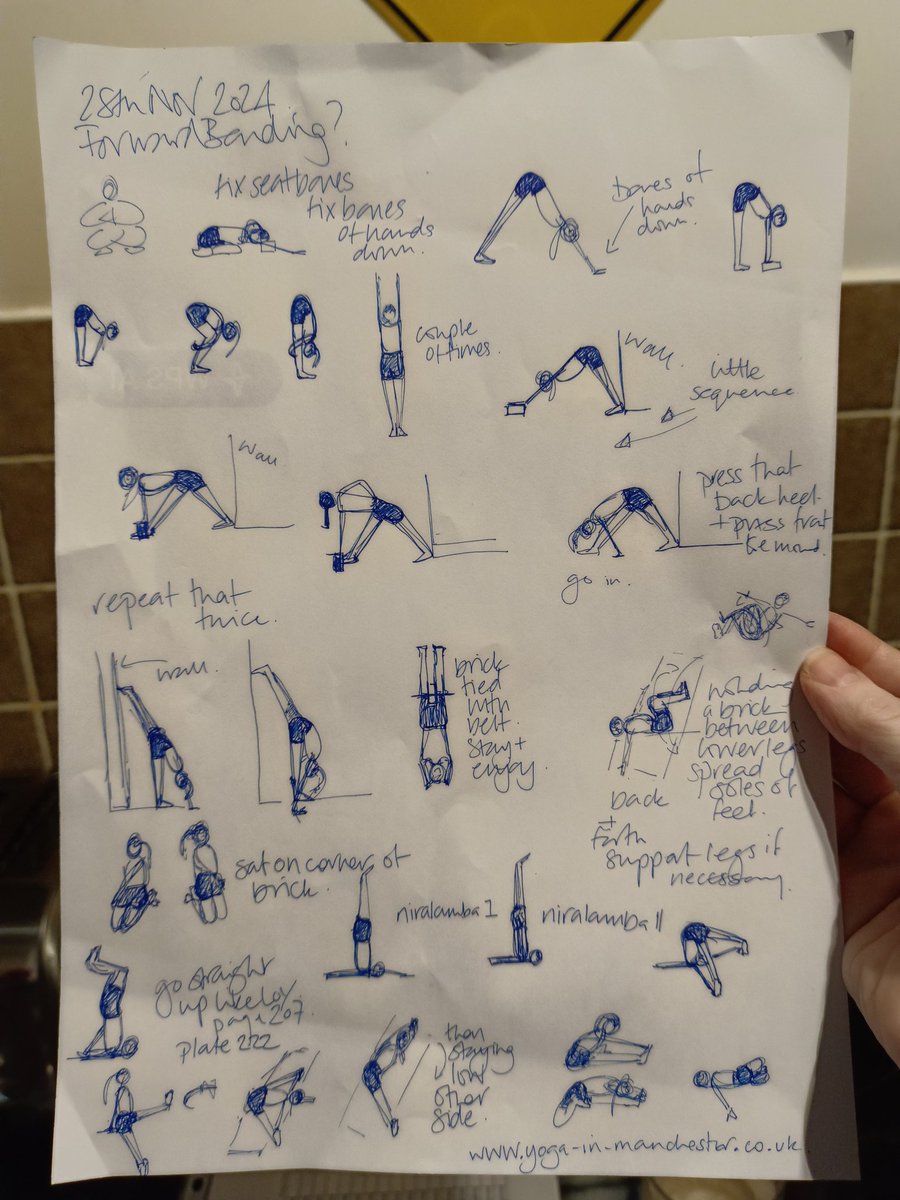 28th Nov 2024
Forward Bending?
fix seatbones
fix bones
of hands
down.
bones of
hands
down.
couple
of times.
wall
little
sequence
wall
press that
back heel
+ press front
go in.
repeat that
twice.
wall.
brick
tied
with
belt.
stay +
enjoy.
a brick
between
lower legs
spread
soles of
feet.
back
+
forth
support legs if
necessary.
sat on corner of
brick.
niralamba I
niralamba II
go straight
up like
page 207.
plate 222
then
staying
low
other
side.
www.yoga-in-manchester.co.uk